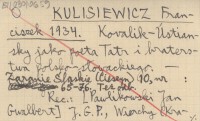 KULISIEWICZ Fran-
ciszek 1934. Kovalik-Ustian-
sky jako poeta Tatr i braters-
twa polsko-słowackiego. -
Zaranie Śląskie (Cieszyn) 10, nr
65-76
Rec.: Pawlikowski Jan
Gwalbert J. G. P., Wierchy